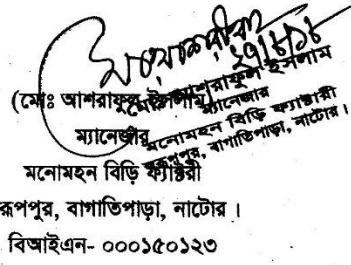 ২৭/৪/১৮
(মোঃ আশরাফুল ইসলাম)
ম্যানেজার
মনোমহন বিড়ি ফ্যাক্টরী
রূপপুর, বাগাতিপাড়া, নাটোর ।
বিআইএন- ০০০১৫০১২৩
মোঃ আশরাফুল ইসলাম
ম্যানেজার
মনোমহন বিড়ি ফ্যাক্টরী
রূপপুর, বাগাতিপাড়া, নাটোর।